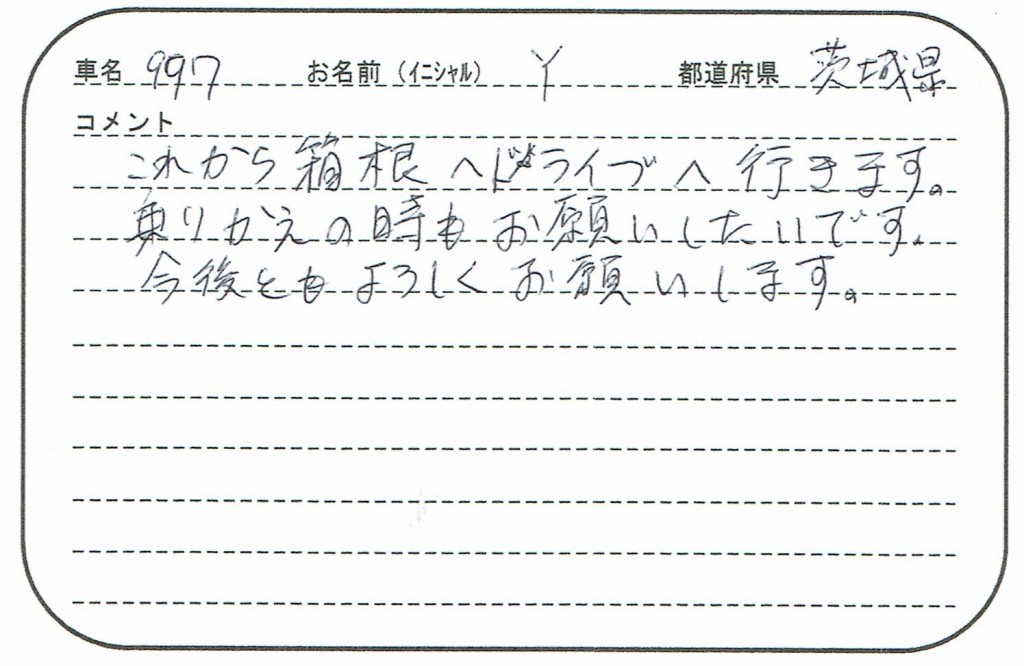 車名 997 お名前（イニシャル） Y 都道府県 茨城県
コメント
これから箱根へドライブへ行きます。
乗りかえの時もお願いしたいです。
今後ともよろしくお願いします。